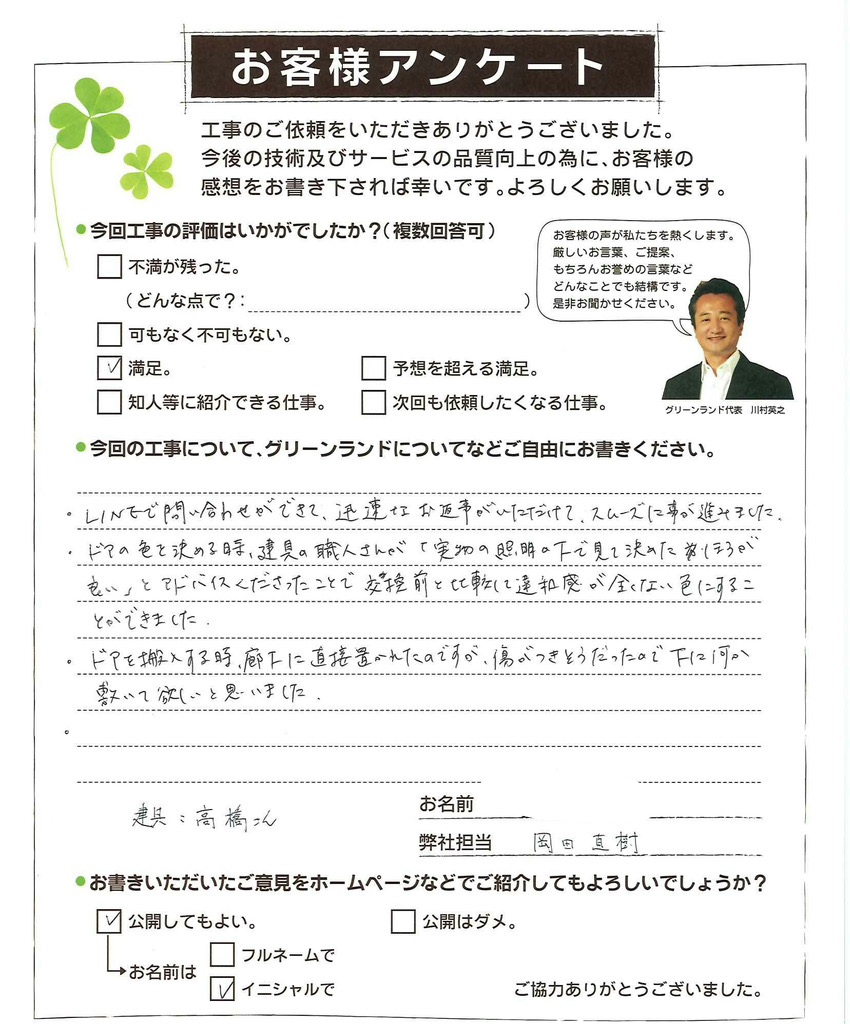 お客様アンケート
工事のご依頼をいただきありがとうございました。
今後の技術及びサービスの品質向上の為に、お客様の
感想をお書き下されば幸いです。よろしくお願いします。
●今回工事の評価はいかがでしたか？（複数回答可）
不満が残った。
（どんな点で？：　）
可もなく不可もない。
☑満足。
予想を超える満足。
知人等に紹介できる仕事。
次回も依頼したくなる仕事。
お客様の声が私たちを熱くします。
厳しいお言葉、ご提案、
もちろんお誉めの言葉など
どんなことでも結構です。
是非お聞かせください。
グリーンランド代表　川村英之
●今回の工事について、グリーンランドについてなどご自由にお書きください。
。LINEで問い合わせができて、迅速なお返事がいただけて、スムーズに事が進みました。
。ドアの色を決める時、建具の職人さんが「実物の照明の下で見て決めたほうが
良い」とアドバイスくださったことで交換前と比較して違和感が全くない色にするこ
とができました。
。ドアを搬入する時、廊下に直接置かれたのですが、傷がつきそうだったので下に何か
敷いて欲しいと思いました。
。
建具：高橋さん
お名前
弊社担当　岡田直樹
●お書きいただいたご意見をホームページなどでご紹介してもよろしいでしょうか？
☑公開してもよい。
公開はダメ。
お名前は
フルネームで
☑イニシャルで
ご協力ありがとうございました。